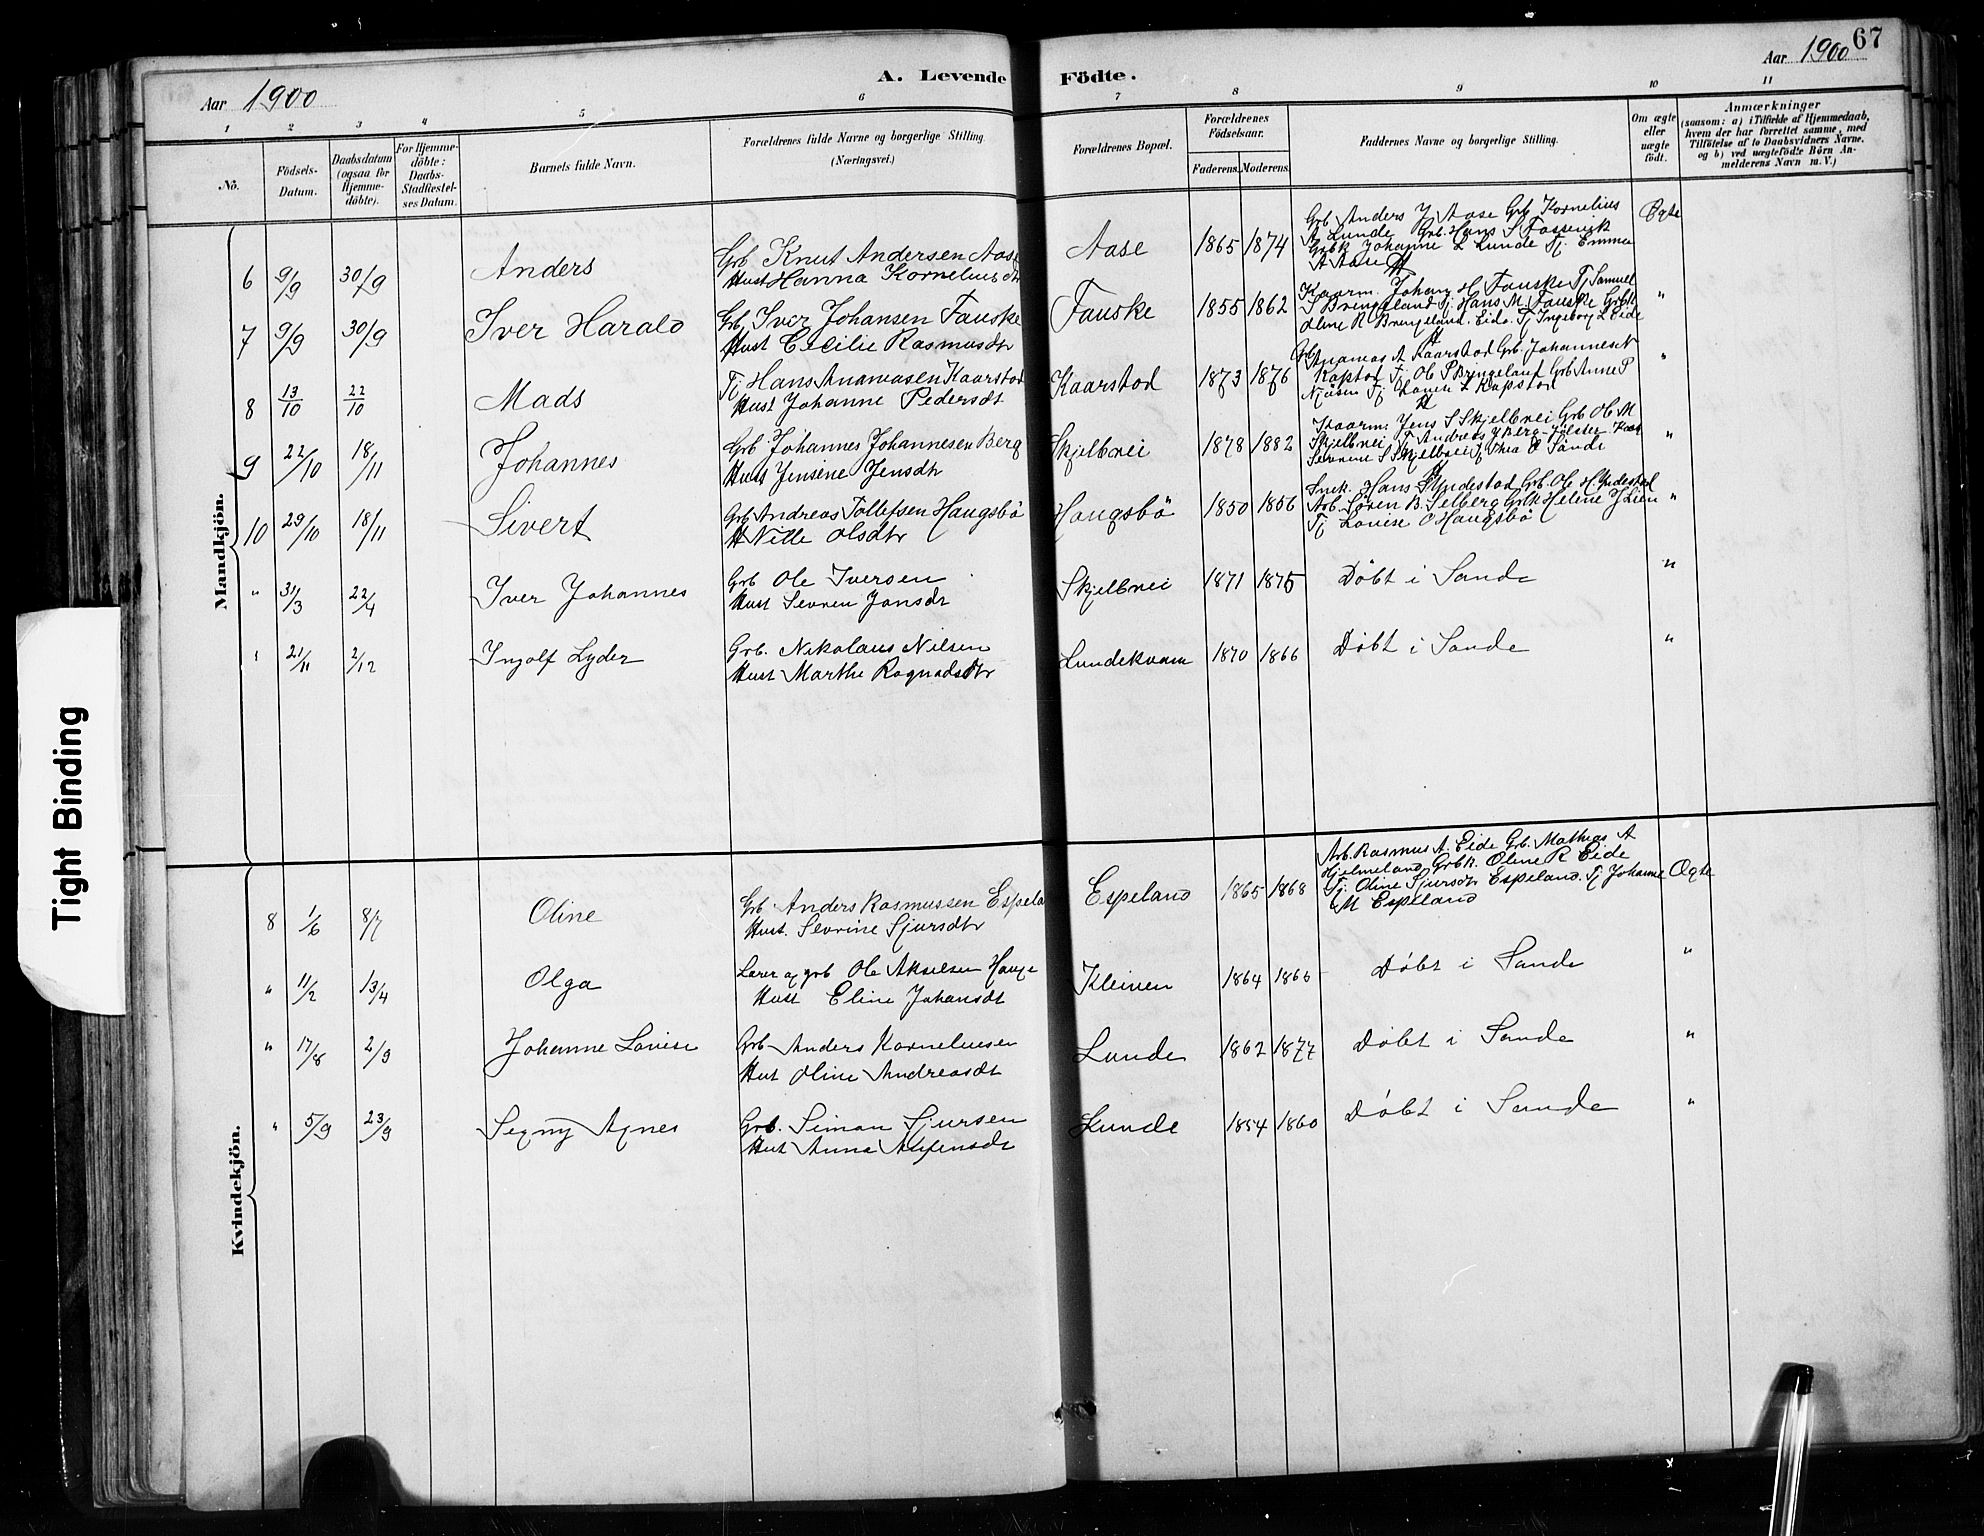 67
Aar 1900
A. Levende Födte.
Aar 1900
1 2 3 4 5 6 7 8 9 10 11
No.
Födsels-Datum.
Daabsdatum (ogsaa for Hjemmedöbte).
For Hjemmedöbte: Daabs-Stadfæstelses Datum.
Barnets fulde Navn.
Forældrenes fulde Navne og borgerlige Stilling.
(Næringsvei.)
Forældrenes Bopæl.
Forældrenes Födselsaar.
Faderens. Moderens.
Faddernes Navne og borgerlige Stilling.
Om ægte eller uægte födt.
Anmærkninger
(saasom: a) i Tilfælde af Hjemmedaab,
hvem der har forrettet samme, med
Tilföielse af to Daabsvidners Navne,
og b) ved uægtefödte Börn An-
melderens Navn m. V.)
Mandkjön.
6 9/9 30/9 Anders Grb Knut Andersen Aase
Hust Hanna Kornelius dtr
Aase 1865 1874
Grb Anders J Aase Grb Kornelius
A Lunde Grb. Hans S Fossevik
Grbk Johanne L Lunde Tj. Emma
A Aase
Ægte
7 9/9 30/9 Iver Harald Grb Iver Johansen Fauske
Hust Cecilie Rasmusdtr
Fauske 1855 1862
Kaarm. Johan H Fauske Tj Samuel
S Bringeland Tj. Hans M. Fauske Grbk
Oline R Bringeland. Eide Tj Ingeborg L Eide
"
8 13/10 22/10 Mads Tj Hans Ananiasen Kaarstad
Hust Johanne Pedersdt
Kaarstad 1873 1876
Grb Ananias A Kaarstad Grb. Johannes N
Kapstad Tj Ole P Bringeland Grb Anne P
Tj L Kapstad
"
9 22/10 18/11 Johannes Grb Johannes Johannesen Berg
Hust Jensine Jensdtr
Skjelbrei 1878 1882
Kaarm. Jens S Skjelbrei Grb Ole M
Skjelbrei T Andreas J Berg Jølster
Sevrine S Skjelbrei Tj Thea O Sande
"
10 29/10 18/11 Sivert Grb Andreas Tollefsen Haugsbö
H Nille Olsdtr
Haugsbö 1850 1856
Snek. Hans S Indestad Grb. Ole H Indestad
Arb. Søren B. Selberg Grbk Helene J Lien
Tj Lovise O Haugsbö
"
" 31/3 22/4 Iver Johannes Grb Ole Iversen
Hust Sevren Jonsdt
Skjelbrei 1871 1875 Døbt i Sande "
" 21/11 2/12 Ingolf Lyder Grb. Nikolaus Nilsen
Hust Marthe Ragnadsdtr
Lundekvam 1870 1866 Døbt i Sande "
Kvindekjön.
8 1/6 8/7 Oline Grb. Anders Rasmussen Espela
Hust. Sevrine Sjursdtr
Espeland 1865 1868
Arb. Rasmus A. Eide Grb. Mathias A
Hjelmeland Grbk. Oline R Eide
Tj. Oline Sjursdtr Espeland. Tj Johanne
M Espeland
Ægte
" 11/2 13/4 Olga Lærer og grb Ole Akselsen Hauge
Hust Eline Johansdt
Kleiven 1864 1860 Døbt i Sande "
" 17/8 2/9 Johanne Lovise Grb Anders Korneliusen
Hust Oline Andreasdt
Lunde 1862 1877 Døbt i Sande "
" 5/9 23/9 Signy Agnes Grb. Simon Sjursen
Hust Anna
Lunde 1854 1860 Døbt i Sande "
Tight Binding